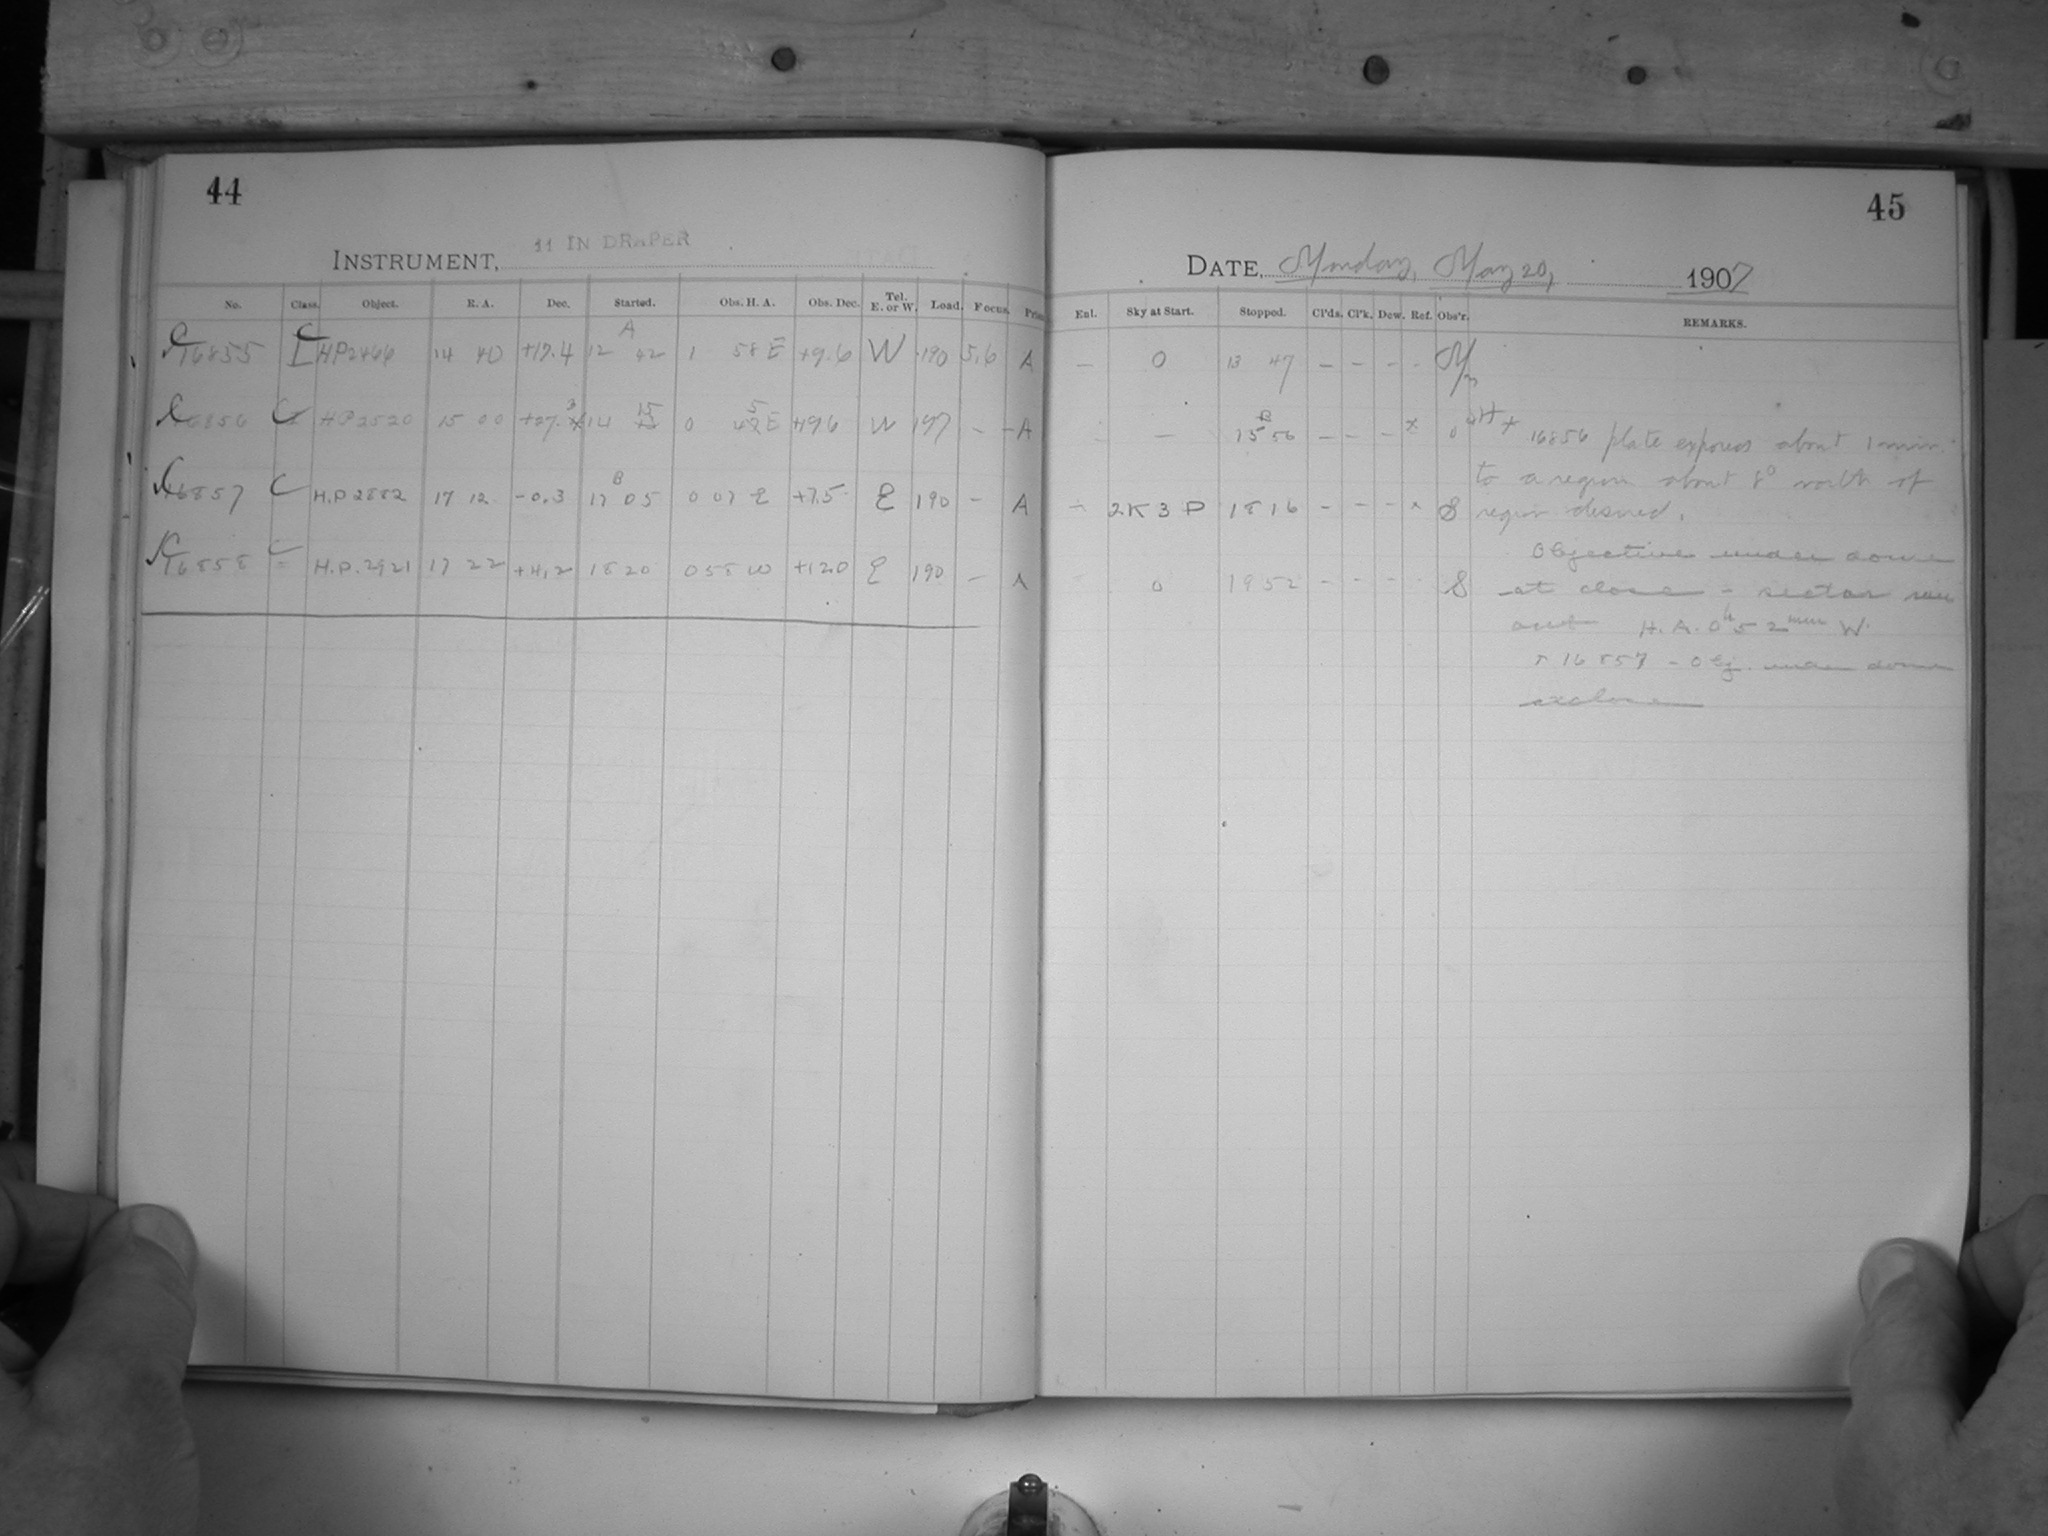 44
INSTRUMENT, 11 IN DRAPER
No. Class. Object. R. A. Dec. Started. Obs. H. A. Obs. Dec. Tel. E. or W. Load. Focus.
A
16855 I HP2466 14 40 +17.4 12 42 1 58 E +9.6 W 190 5.6 A
16856 HP2520 15 00 14 15 0 E W 197 - A
B
16857 C H.P 2882 17 12 -0.3 17 05 0 07 E +7.5 E 190 - A
16858 C H.P. 2921 17 22 +4.2 18 20 0 58 W +12.0 E 190 - A
45
DATE, Monday, May 20, 1907
Enl. Sky at Start. Stopped. Cl'ds. Cl'k. Dew. Ref. Obs'r. REMARKS.
- 0 13 47 - - - -
- 15 56 - - - x
16856 plate exposed about 1 min.
to a region about 8° north of
- 2K 3 P 18 16 - - - x S region desired.
Objective under dome
- 0 19 52 - - - - S at close - sector
out H. A. 0h 52 min W.
x 16857 - Obj. under dome